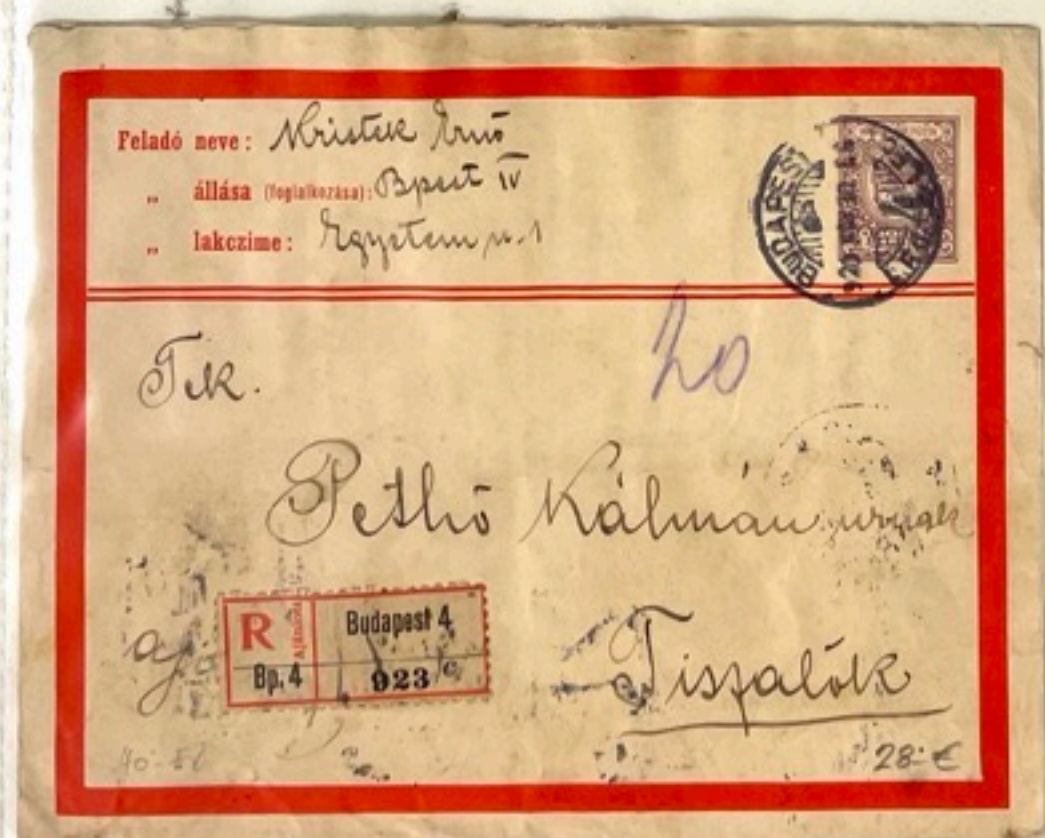 Feladó neve: Kristek Ernő
„ állása (foglalkozása): Bpest IV
„ lakczime: Egyetem u. 1
BUDAPEST
20
Tek.
Pethő Kálmán úrnak
R Ajánlott Budapest 4.
Bp. 4 923 /c
aj
Tiszalök
28.- €